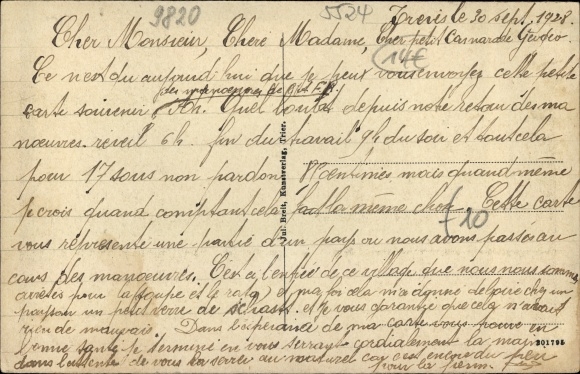 9820
5524
Treves le 30 sept. 1928
Cher Monsieur, Chere Madame, Cher petit Camarade
14€
Ce n'est du aujourd'hui que je peux vous envoyer cette petite
des manoeuvres de
carte souvenir Quel boulot depuis notre retour des ma
noeuvres. reveil 6h. fin du travail 9h du soir et tout cela
pour 17 sous non pardon centimes mais quand même
je crois quand comptant cela fait la même chose Cette carte
10
vous représente une partie d'un pays ou nous avons passés au
cours des manoeuvres. C'est a l'entrée de ce village que nous nous sommes
arretés pour la soupe et le rata et ma foi cela m'a donné de boire chez un
paysan un petit verre de schnass et je vous garantie que cela n'avait
rien de mauvais. Dans l'espérance de ma carte vous trouve en
bonne santé je termine en vous serrant cordialement la main
dans l'attente de vous la serrer au naturel car c'est encore du peu
pour la perm.
Jul. Breit, Kunstverlag, Trier.
201795